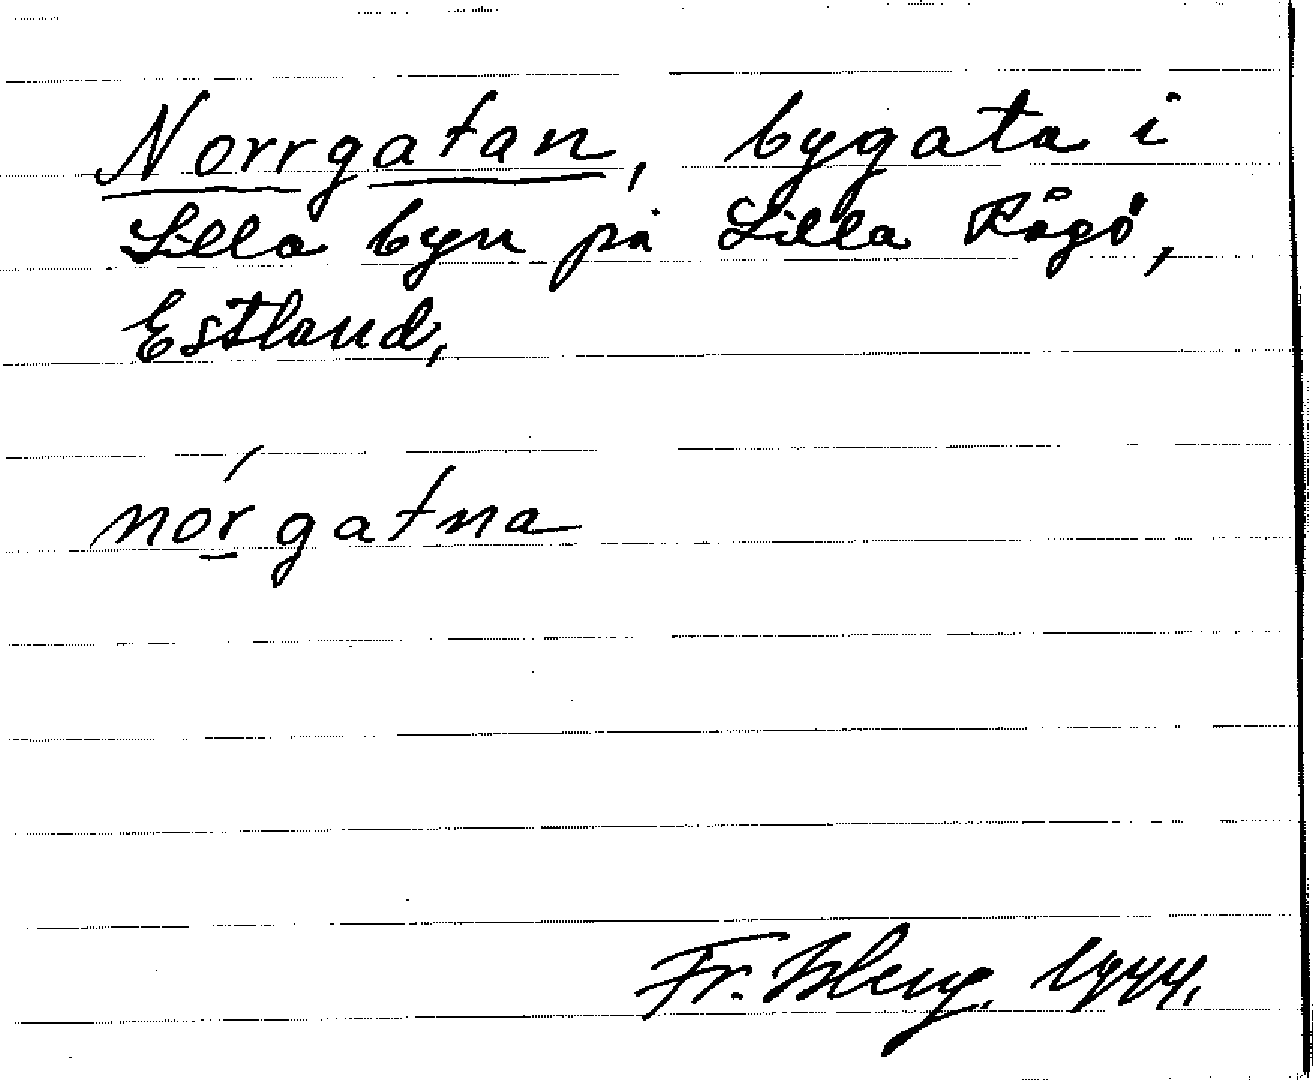 Norrgatan, bygata i
Lilla byn på Lilla Rågö,
Estland,
nórgatna
Fr. 1944.